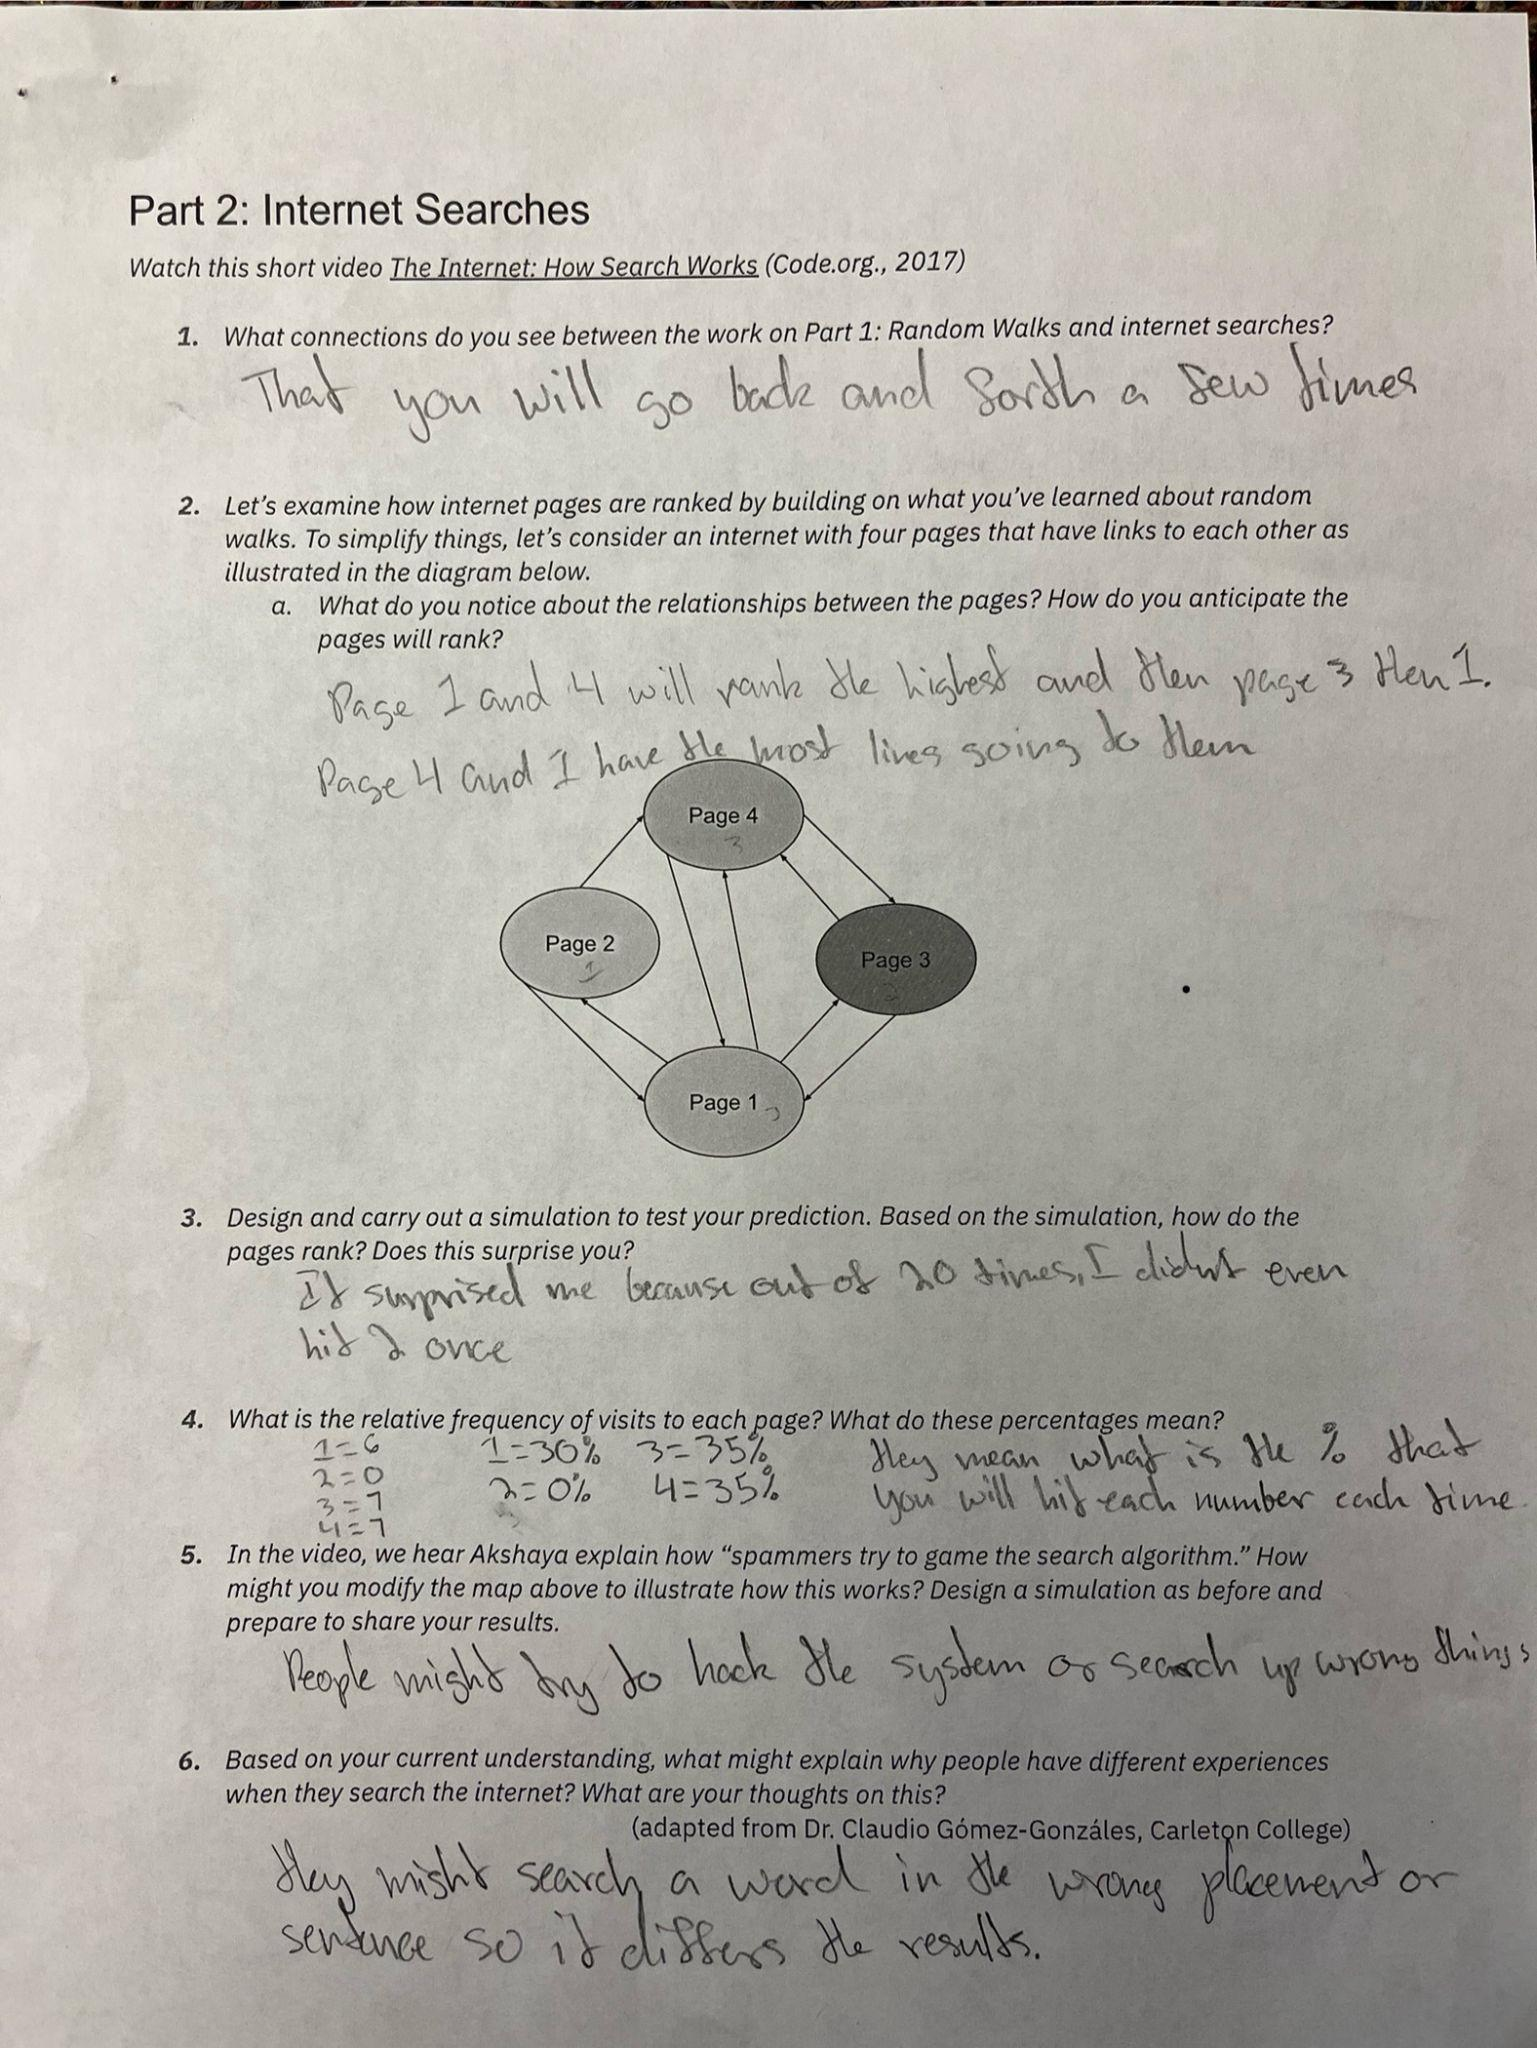 Part 2: Internet Searches
Watch this short video The Internet: How Search Works (Code.org., 2017)
1. What connections do you see between the work on Part 1: Random Walks and internet searches?
That you will go back and forth a few times
2. Let's examine how internet pages are ranked by building on what you've learned about random
walks. To simplify things, let's consider an internet with four pages that have links to each other as
illustrated in the diagram below.
a. What do you notice about the relationships between the pages? How do you anticipate the
pages will rank?
Page 1 and 4 will rank the highest and then page 3 then 1.
Page 4 and 1 have the most lines going to them
Page 4
3
Page 2
1
Page 3
2
Page 1
3
3. Design and carry out a simulation to test your prediction. Based on the simulation, how do the
pages rank? Does this surprise you?
It surprised me because out of 20 times, I didn't even
hit 2 once
4. What is the relative frequency of visits to each page? What do these percentages mean?
1=6 1=30% 3=35% they mean what is the % that
2=0 2=0% 4=35% you will hit each number each time.
3=7
4=7
5. In the video, we hear Akshaya explain how "spammers try to game the search algorithm." How
might you modify the map above to illustrate how this works? Design a simulation as before and
prepare to share your results.
People might try to hack the system or search up wrong things
6. Based on your current understanding, what might explain why people have different experiences
when they search the internet? What are your thoughts on this?
(adapted from Dr. Claudio Gómez-Gonzáles, Carleton College)
they might search a word in the wrong placement or
sentence so it differs the results.